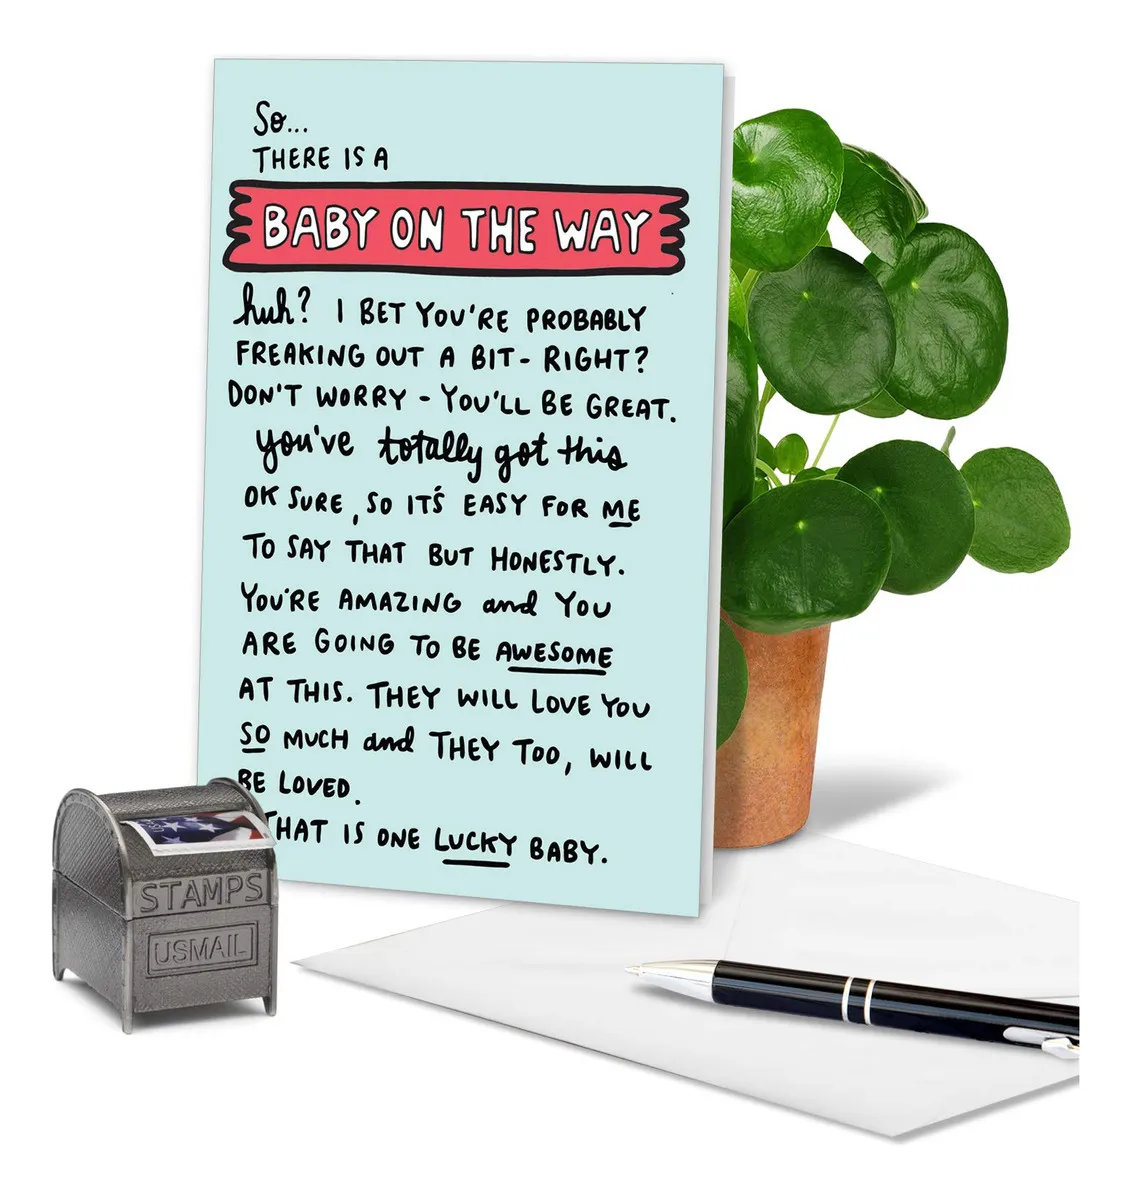 So...
THERE IS A
BABY ON THE WAY
huh? I BET YOU'RE PROBABLY
FREAKING OUT A BIT - RIGHT?
DON'T WORRY - YOU'LL BE GREAT.
you've totally got this
OK SURE, SO IT'S EASY FOR ME
TO SAY THAT BUT HONESTLY.
YOU'RE AMAZING and YOU
ARE GOING TO BE AWESOME
AT THIS. THEY WILL LOVE YOU
SO MUCH and THEY TOO, WILL
BE LOVED.
THAT IS ONE LUCKY BABY.
STAMPS
USMAIL